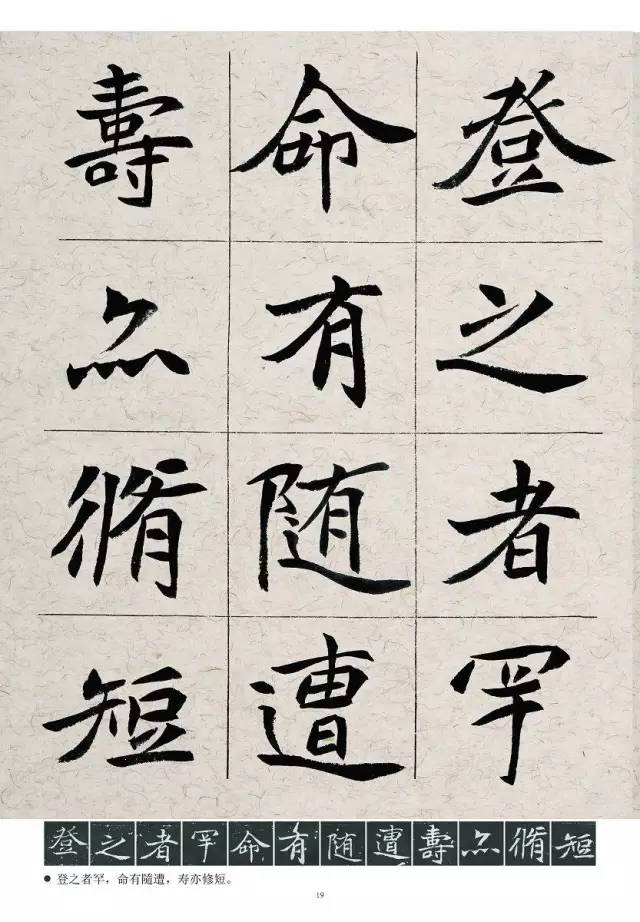 登之者罕
命有随遭
壽亦脩短
登之者罕命有随遭壽亦脩短
● 登之者罕，命有隨遭，寿亦修短。
19